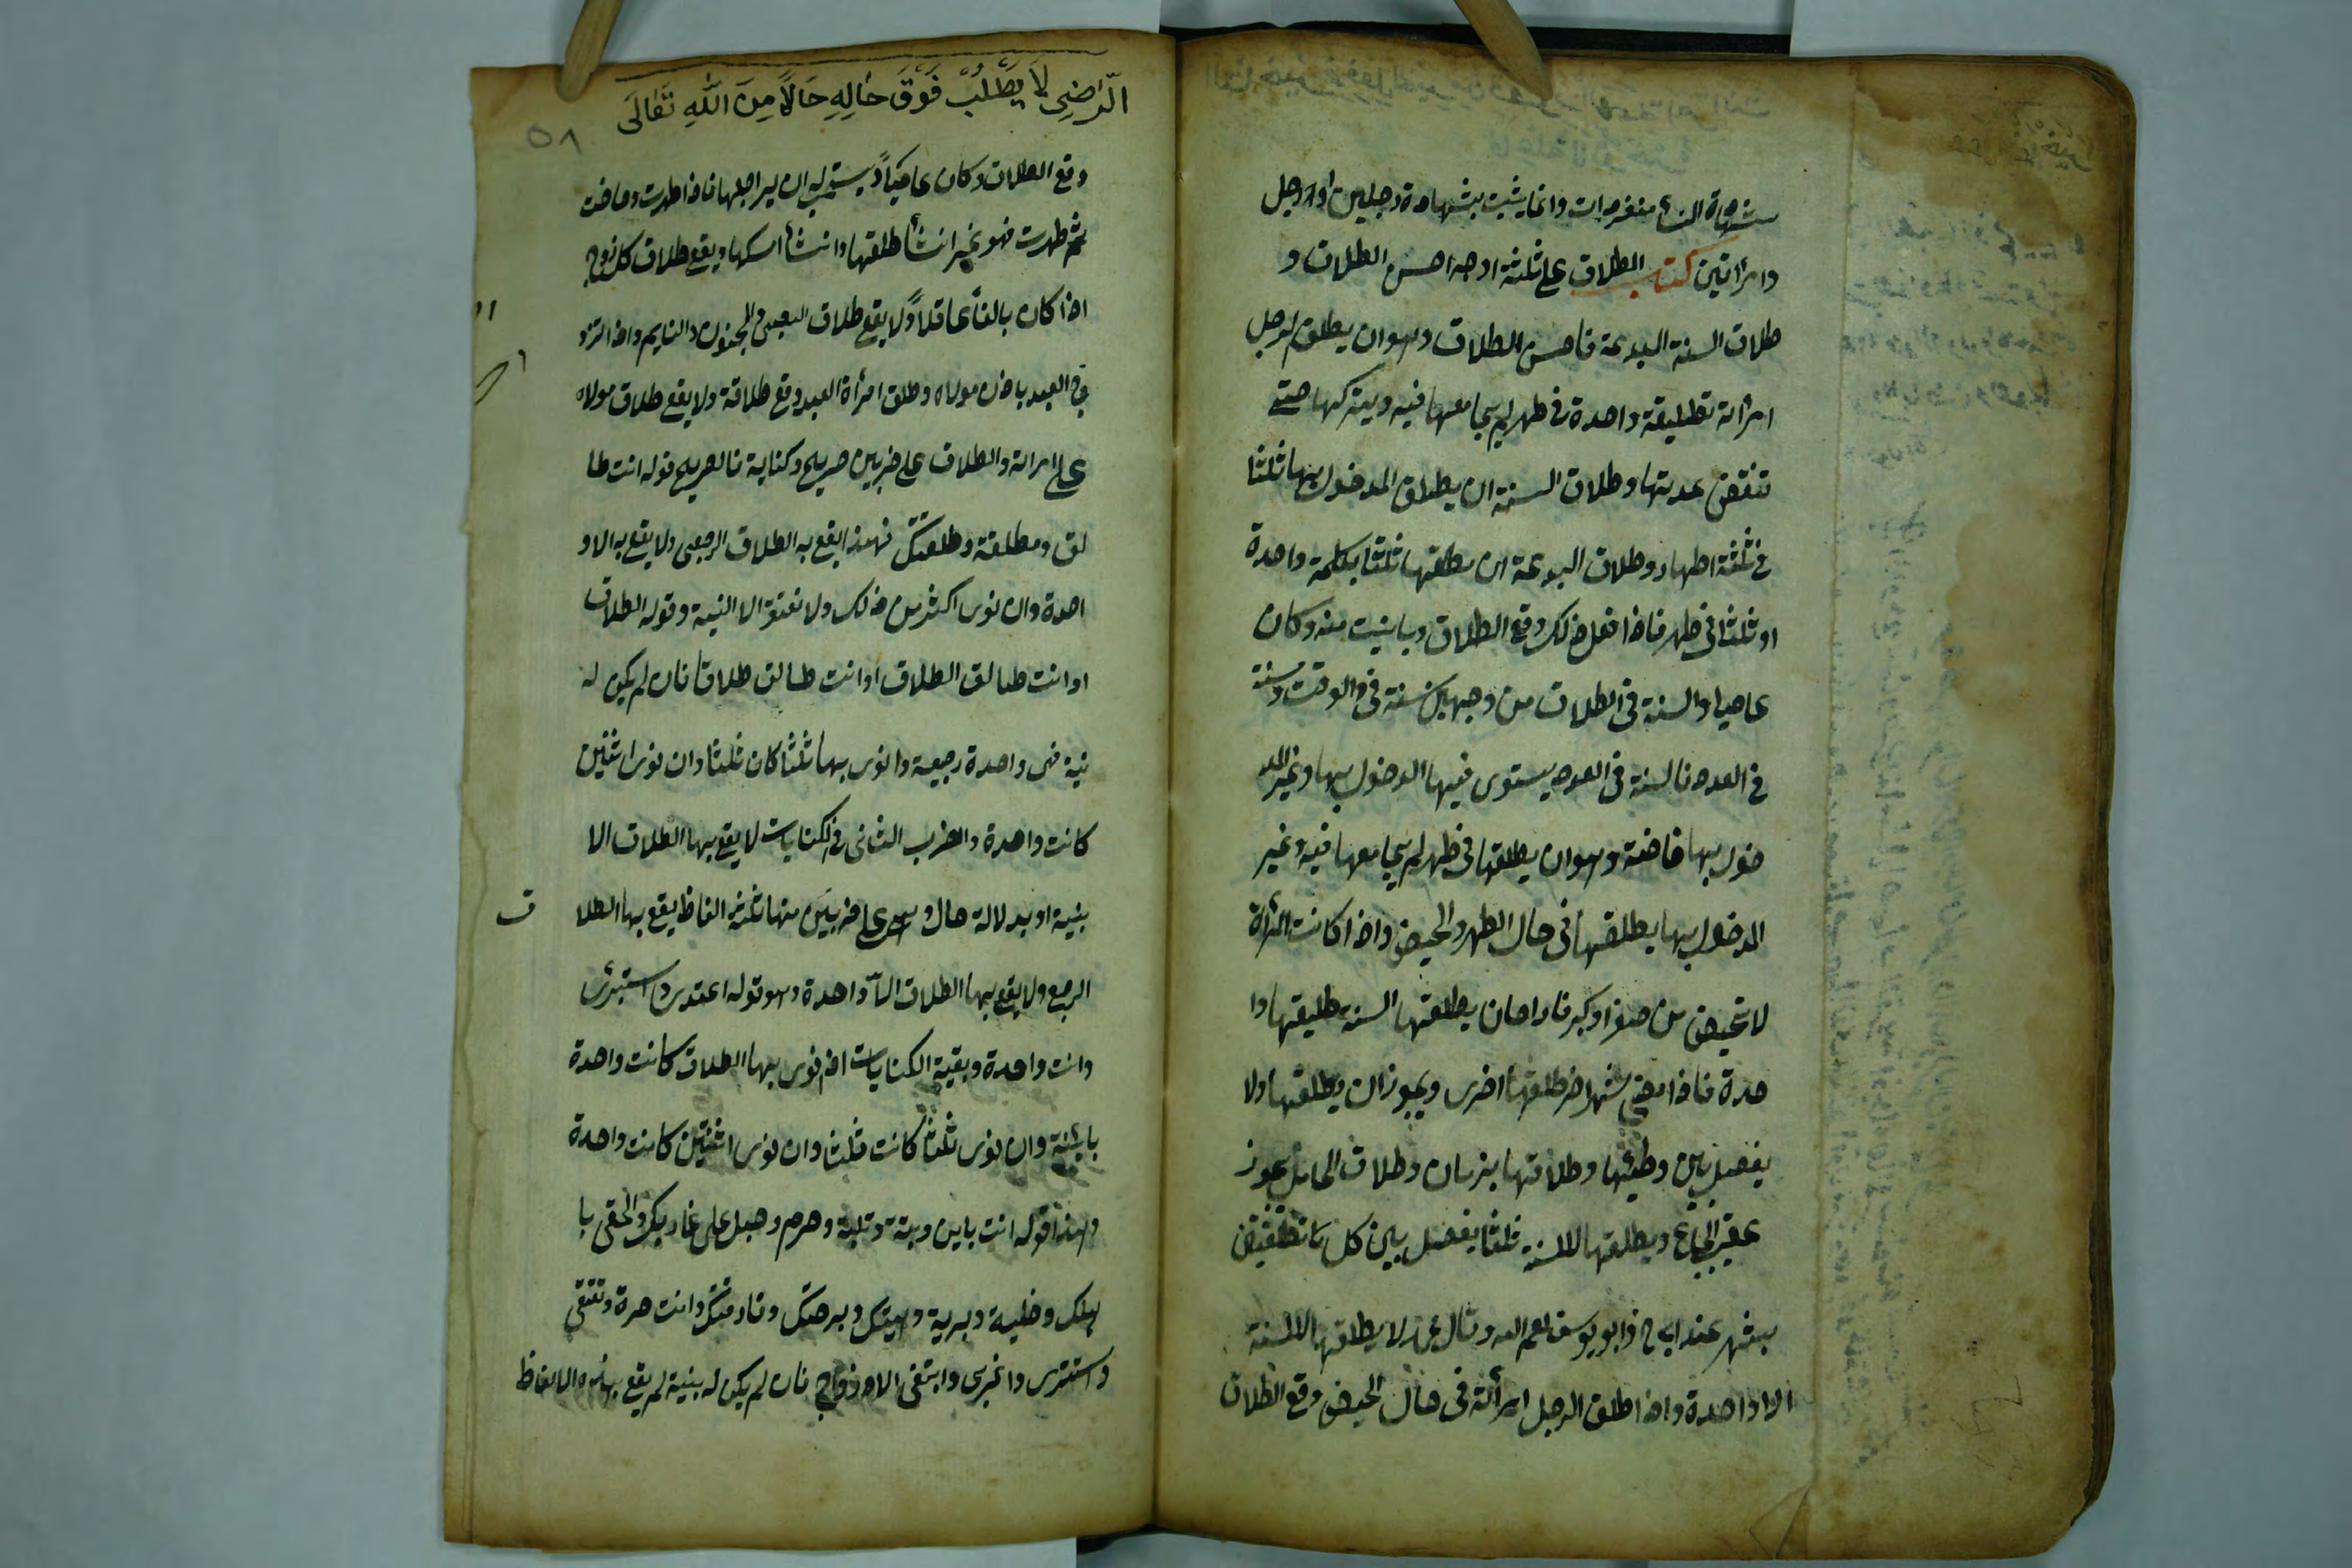 شهادة النساء منفردات وانما يثبت بشهادة رجلين او رجل
وامرأتين كتاب الطلاق على ثلثة اوجه احسن الطلاق و
طلاق السنة البدعة فاحسن الطلاق وهو ان يطلق الرجل
امرأته تطليقة واحدة في طهر لم يجامعها فيه ويتركها حتى
تنقضى عدتها وطلاق السنة ان يطلق المدخول بها ثلثا
في ثلثة اطهار وطلاق البدعة ان يطلقها ثلثا بكلمة واحدة
او ثلثا في طهر فاذا فعل ذلك وقع الطلاق وبانت منه وكان
عاصيا والسنة في الطلاق من وجهين سنة في الوقت وسنة
في العدد فالسنة في العدد يستوى فيها المدخول بها وغير المد
خول بها خاصة وهو ان يطلقها في طهر لم يجامعها فيه وغير
المدخول بها يطلقها في حال الطهر والحيض واذا كانت المرأة
لا تحيض من صغر او كبر فاراد ان يطلقها السنة طليقها وا
حدة فاذا مضى شهر اخر طلقها اخرى ويجوز ان يطلقها ولا
يفصل بين وطيها وطلاقها بزمان وطلاق الحامل يجوز
عقيب الجماع ويطلقها للسنة ثلثا يفصل بين كل تطليقتين
بشهر عند ابي ح وابو يوسف رحمهم الله وقال محمد لا يطلقها للسنة
الا واحدة واذا طلق الرجل امرأته في حال الحيض وقع الطلاق
الرّاضِى لَا يَطْلُبُ فَوْقَ حَالِهِ حَالاً مِنَ اللهِ تَعَالَى
٥٨
وقع الطلاق وكان عاصياً ويستحب له ان يراجعها فاذا طهرت وحاضت
ثم طهرت فهو مخير ان شأ طلقها وان شأ امسكها ويقع طلاق كل زوج
اذا كان بالغاً عاقلاً ولا يقع طلاق الصبى والمجنون والنايم واذا تزو
ج العبد باذن مولاه وطلق امرأة العبد وقع طلاقه ولا يقع طلاق مولاه
على امراته والطلاق على ضربين صريح وكناية فالصريح قوله انت طا
لق ومطلقة وطلقتك فهذا يقع به الطلاق الرجعى ولا يقع به الا و
احدة وان نوى اكثر من ذلك ولا تفتقر الا النية وقوله الطلاق
او انت طالق الطلاق او انت طالق طلاقا فان لم يكن له
نية فهى واحدة رجعية وا نوى بها ثلثا كان ثلثا وان نوى اثنين
كانت واحدة والضرب الثانى في الكنايات لا يقع بها الطلاق الا
بنية او بدلالة حال وهى على ضربين منها ثلثة الفاظ يقع بها الطلا
ق
الرجع ولا يقع بها الطلاق الآ واحدة وهو قوله اعتدى واستبرئى
وانت واحدة وبقية الكنايات اذ نوى بها الطلاق كانت واحدة
بائنة وان نوى ثلثا كانت ثلثا وان نوى اثنتين كانت واحدة
وهذا قوله انت باين وبتة وبتلة وحرم وحبل على غاربك والحقى با
هلك وخلية وبرية ووهبتك وسرحتك وفارقتك وانت حرة وتقنعى
واستترى واغربى وابتغى الازواج فان لم يكن له بنية لم يقع بهذه الالفاظ